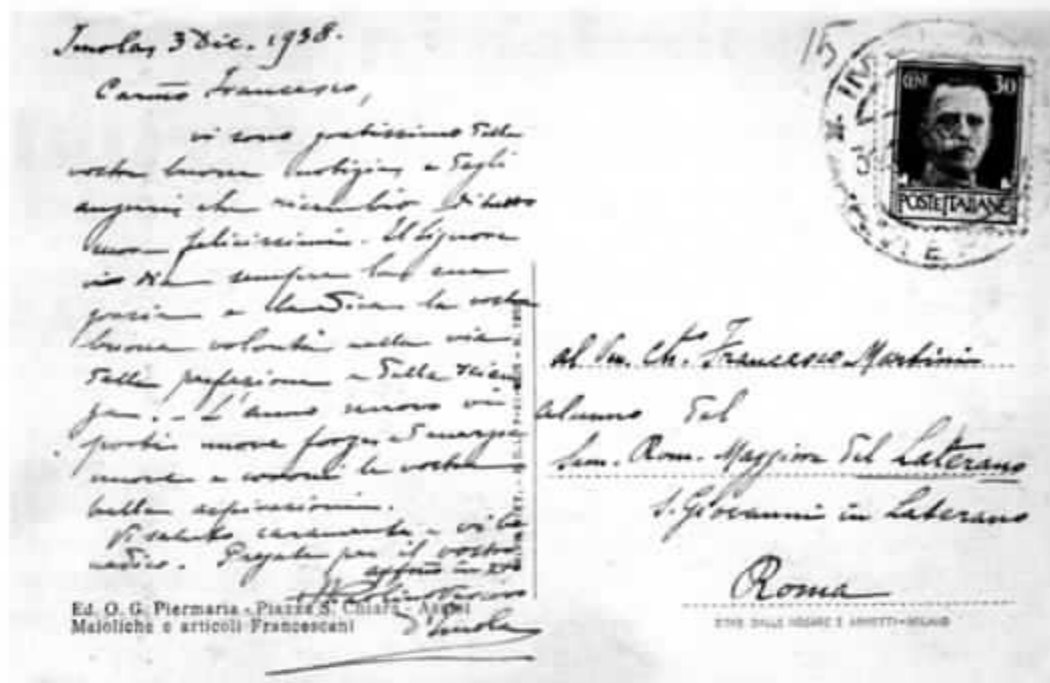 Imola, 3 Dic. 1938.
Carmo Francesco,
vi sono gratissimo delle
vostre buone notizie e degli
auguri che ricambio di tutto
cuore felicissimi. Il Signore
vi dia sempre la sua
grazia e benedica la vostra
buona volontà nella via
della perfezione e della scien
za. - L'anno nuovo vi
porti nuove forze ed energie
nuove e coroni le vostre
belle aspirazioni.
Vi saluto caramente e vi be
nedico. Pregate per il vostro
affmo in
Vescovo
d'Imola
Ed. O. G. Piermaria - Piazza S. Chiara - Assisi
Maioliche e articoli Francescani
CENT 30
POSTE ITALIANE
al Francesco Martini
alunno del
Sem. Rom. Maggiore del Laterano
S. Giovanni in Laterano
Roma